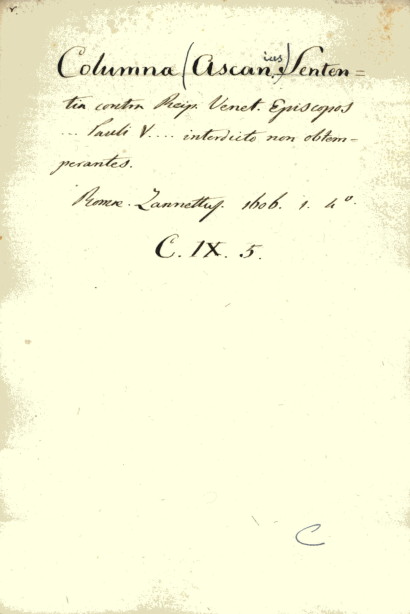 Columna (Ascanius) Senten=
tia contra Reip. Venet. Episcopos
... Pauli V.... interdicto non obtem-
perantes.
Romæ. Zannettus. 1606. 1. 4°.
C. IX. 5.
C